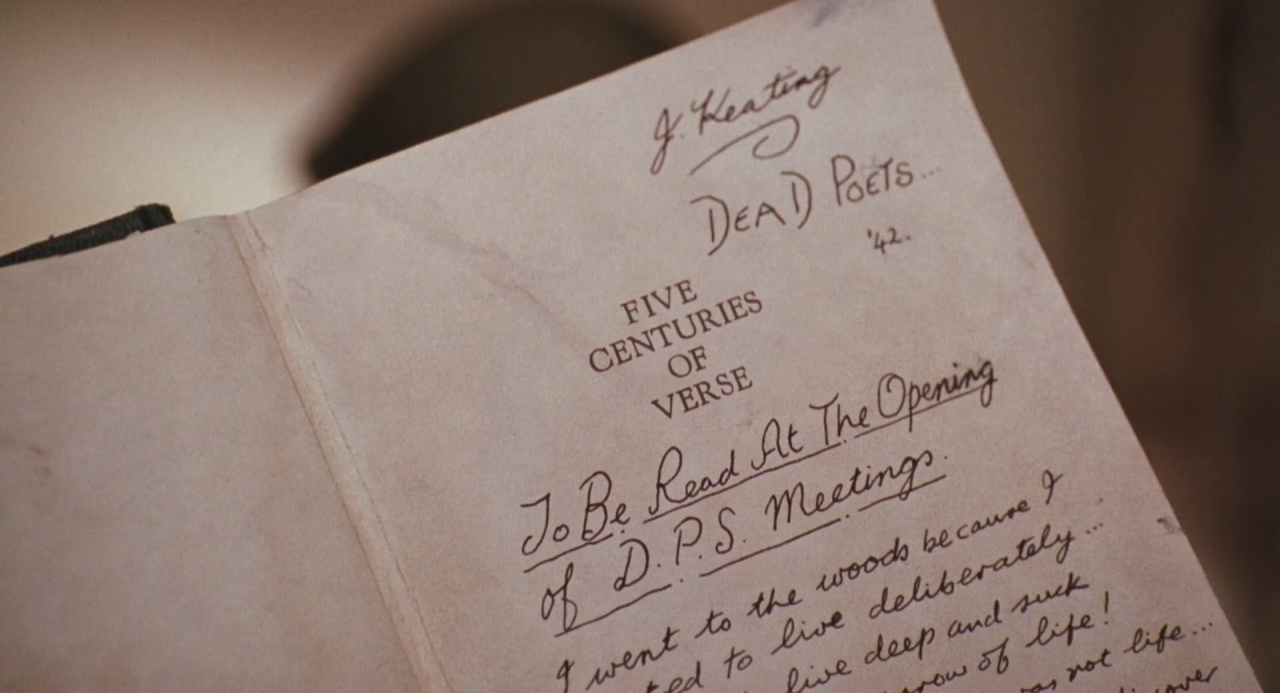 J. Keating
DEAD POETS...
'42.
FIVE
CENTURIES
OF
VERSE
To Be Read At The Opening
of D.P.S. Meetings.
I went to the woods because I
ted to live deliberately...
live deep and suck
row of life!
as not life...
over